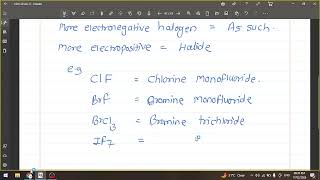 More electronegative halogen = As such.
More electropositive = Halide
eg
ClF = Chlorine monofluoride.
BrF = Bromine monofluoride
BrCl3 = Bromine trichloride
IF7 =